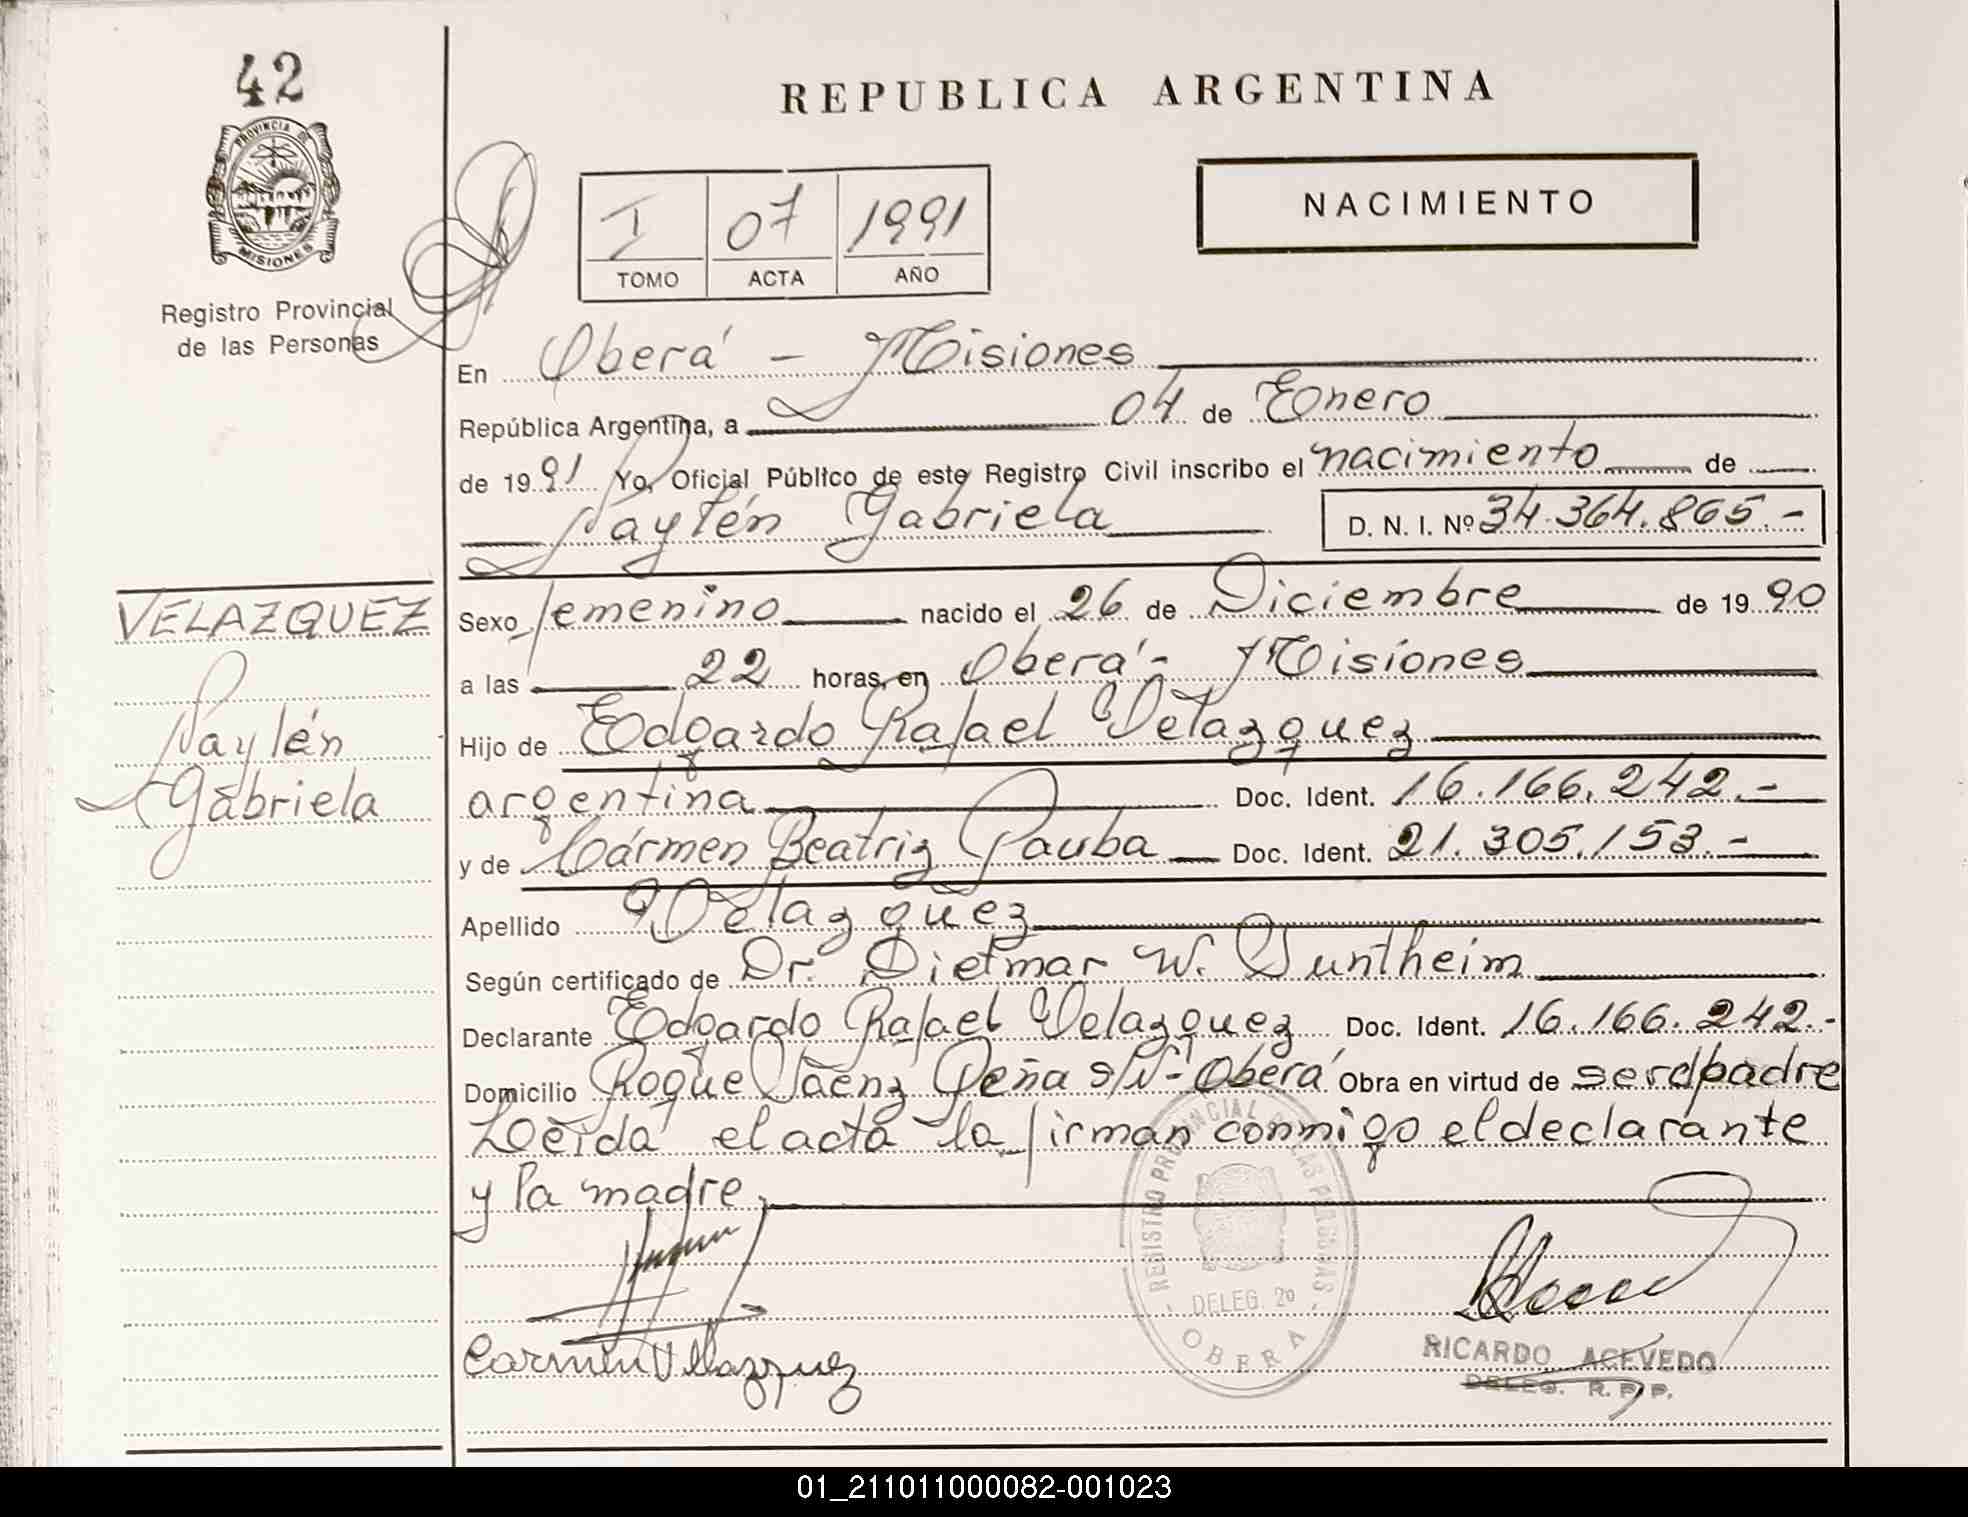 42
PROVINCIA DE
MISIONES
Registro Provincial
de las Personas
REPUBLICA ARGENTINA
I 07 1991
TOMO ACTA AÑO
NACIMIENTO
En Oberá - Misiones
República Argentina, a 04 de Enero
de 1991 Yo, Oficial Público de este Registro Civil inscribo el nacimiento de
Naylén Gabriela D. N. I. Nº 34.364.865.-
VELAZQUEZ
Naylén
Gabriela
Sexo femenino nacido el 26 de Diciembre de 1990
a las 22 horas, en Oberá - Misiones
Hijo de Edgardo Rafael Velazquez
argentina Doc. Ident. 16.166.242.-
y de Cármen Beatriz Pauba Doc. Ident. 21.305.153.-
Apellido Velazquez
Según certificado de Dr. Dietmar W. Guntheim
Declarante Edgardo Rafael Velazquez Doc. Ident. 16.166.242.-
Domicilio Roque Sáenz Peña s/Nº - Oberá Obra en virtud de ser padre
Leída el acta la firman conmigo el declarante
y la madre
REGISTRO PROVINCIAL DE LAS PERSONAS
DELEG. 2º
OBERA
Carmen Velazquez
RICARDO ACEVEDO
DELEG. R. P. P.
01_211011000082-001023